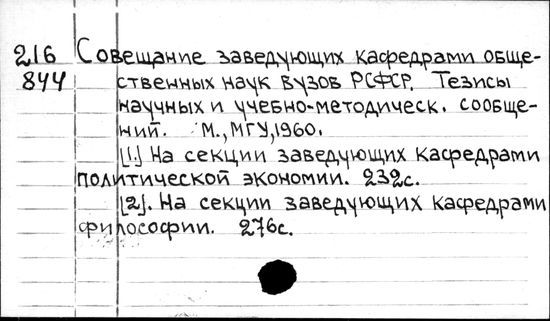 216 Совещание заведующих кафедрами обще-
844 ственных наук вузов РСФСР. Тезисы
научных и учебно-методическ. сообще-
ний. М., МГУ, 1960.
[1.] На секции заведующих кафедрами
политической экономии. 232с.
[2]. На секции заведующих кафедрами
философии. 276с.